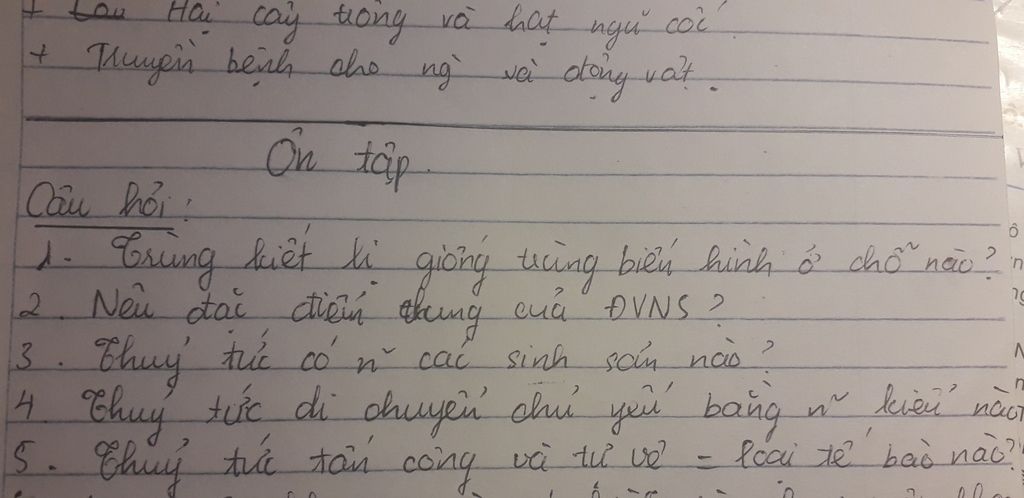 + Hại cây trồng và hạt ngũ cốc.
+ Truyền bệnh cho ng và động vật.
Ôn tập.
Câu hỏi:
1. Trùng kiết lị giống trùng biến hình ở chỗ nào?
2. Nêu đặc điểm chung của ĐVNS?
3. Thuỷ tức có n~ cách sinh sản nào?
4. Thuỷ tức di chuyển chủ yếu bằng n~ kiểu nào?
5. Thuỷ tức tấn công và tự vệ = loại tế bào nào?